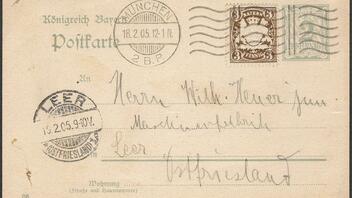 Königreich Bayern
Postkarte
MÜNCHEN
18.2.05.12-1N.
2.B.P.
3 3
3 3
2
An
Herrn Wilh. Heuer jun.
Maschinenfabrik
LEER
19.2.05.9-10V.
(OSTFRIESLAND)
In
Leer
Ostfriesland
Wohnung
(Straße und Hausnummer)